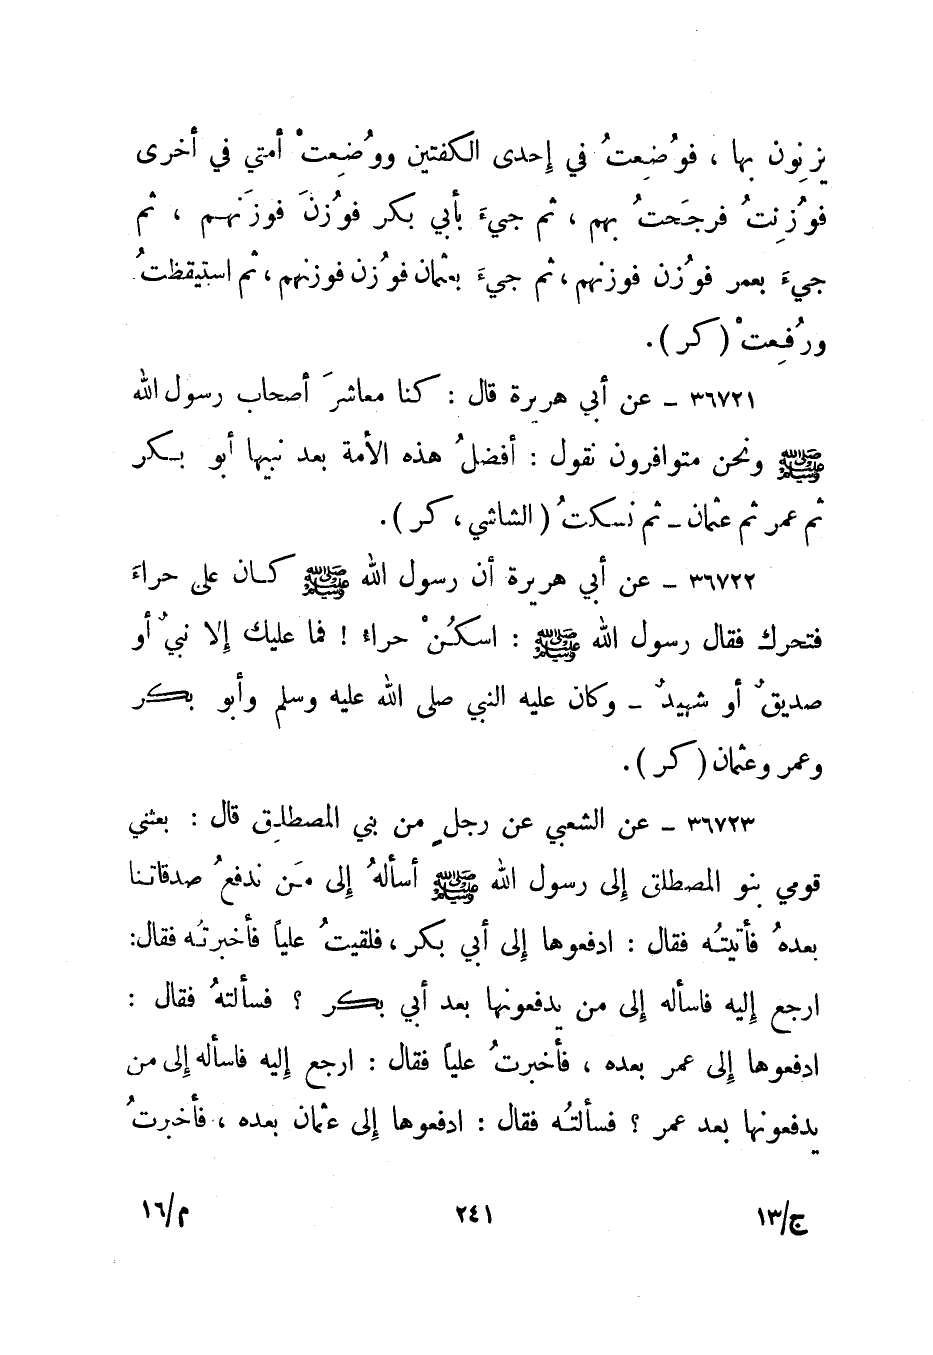 يزِنون بها ، فوُضِعتُ في إحدى الكفتين ووُضِعتْ أمتي في أخرى
فوُزِنتُ فرجَحتُ بهم ، ثم جيءَ بأبي بكر فوُزنَ فوزَنهم ، ثم
جيءَ بعمر فوُزن فوزنهم ، ثم جيءَ بعثمان فوُزن فوزنهم ، ثم استيقظتُ
ورُفِعتْ ( كر ) .
٣٦٧٢١ ـ عن أبي هريرة قال : كنا معاشرَ أصحاب رسول الله
ﷺ ونحن متوافرون نقول : أفضلُ هذه الأمة بعد نبيها أبو بكر
ثم عمر ثم عثمان ـ ثم نسكتُ ( الشاشي ، كر ) .
٣٦٧٢٢ ـ عن أبي هريرة أن رسول الله ﷺ كان على حراءَ
فتحرك فقال رسول الله ﷺ : اسكُنْ حراءُ ! فما عليك إلا نبيٌ أو
صديقٌ أو شهيدٌ ـ وكان عليه النبي صلى الله عليه وسلم وأبو بكر
وعمر وعثمان ( كر ) .
٣٦٧٢٣ ـ عن الشعبي عن رجلٍ من بني المصطلِق قال : بعثني
قومي بنو المصطلق إلى رسول الله ﷺ أسألهُ إلى مَن ندفعُ صدقاتنا
بعدهُ فأتيتُه فقال : ادفعوها إلى أبي بكر ، فلقيتُ علياً فأخبرتُه فقال :
ارجع إليه فاسأله إلى من يدفعونها بعد أبي بكر ؟ فسألتهُ فقال :
ادفعوها إلى عمر بعده ، فأخبرتُ علياً فقال : ارجع إليه فاسأله إلى من
يدفعونها بعد عمر ؟ فسألتُه فقال : ادفعوها إلى عثمان بعده ، فأخبرتُ
ج/١٣ ٢٤١ م/١٦